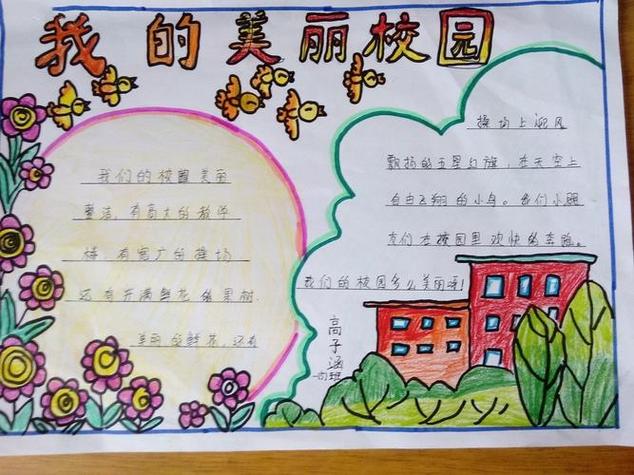 我的美丽校园
我们的校园美丽
整洁，有高大的教学
楼，有宽广的操场
还有开满鲜花的果树.
美丽的鲜花，还有
操场上迎风
飘扬的五星红旗，在天空上
自由飞翔的小鸟。我们小朋
友们在校园里欢快的奔跑。
我们的校园多么美丽呀!
高子涵